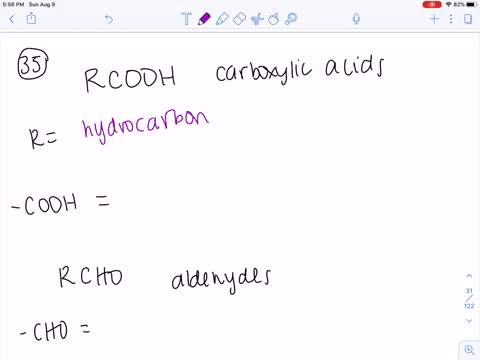 5:56 PM Sun Aug 9
82%
35 RCOOH carboxylic acids
R= hydrocarbon
-COOH =
RCHO aldehydes
-CHO =
31
/
122